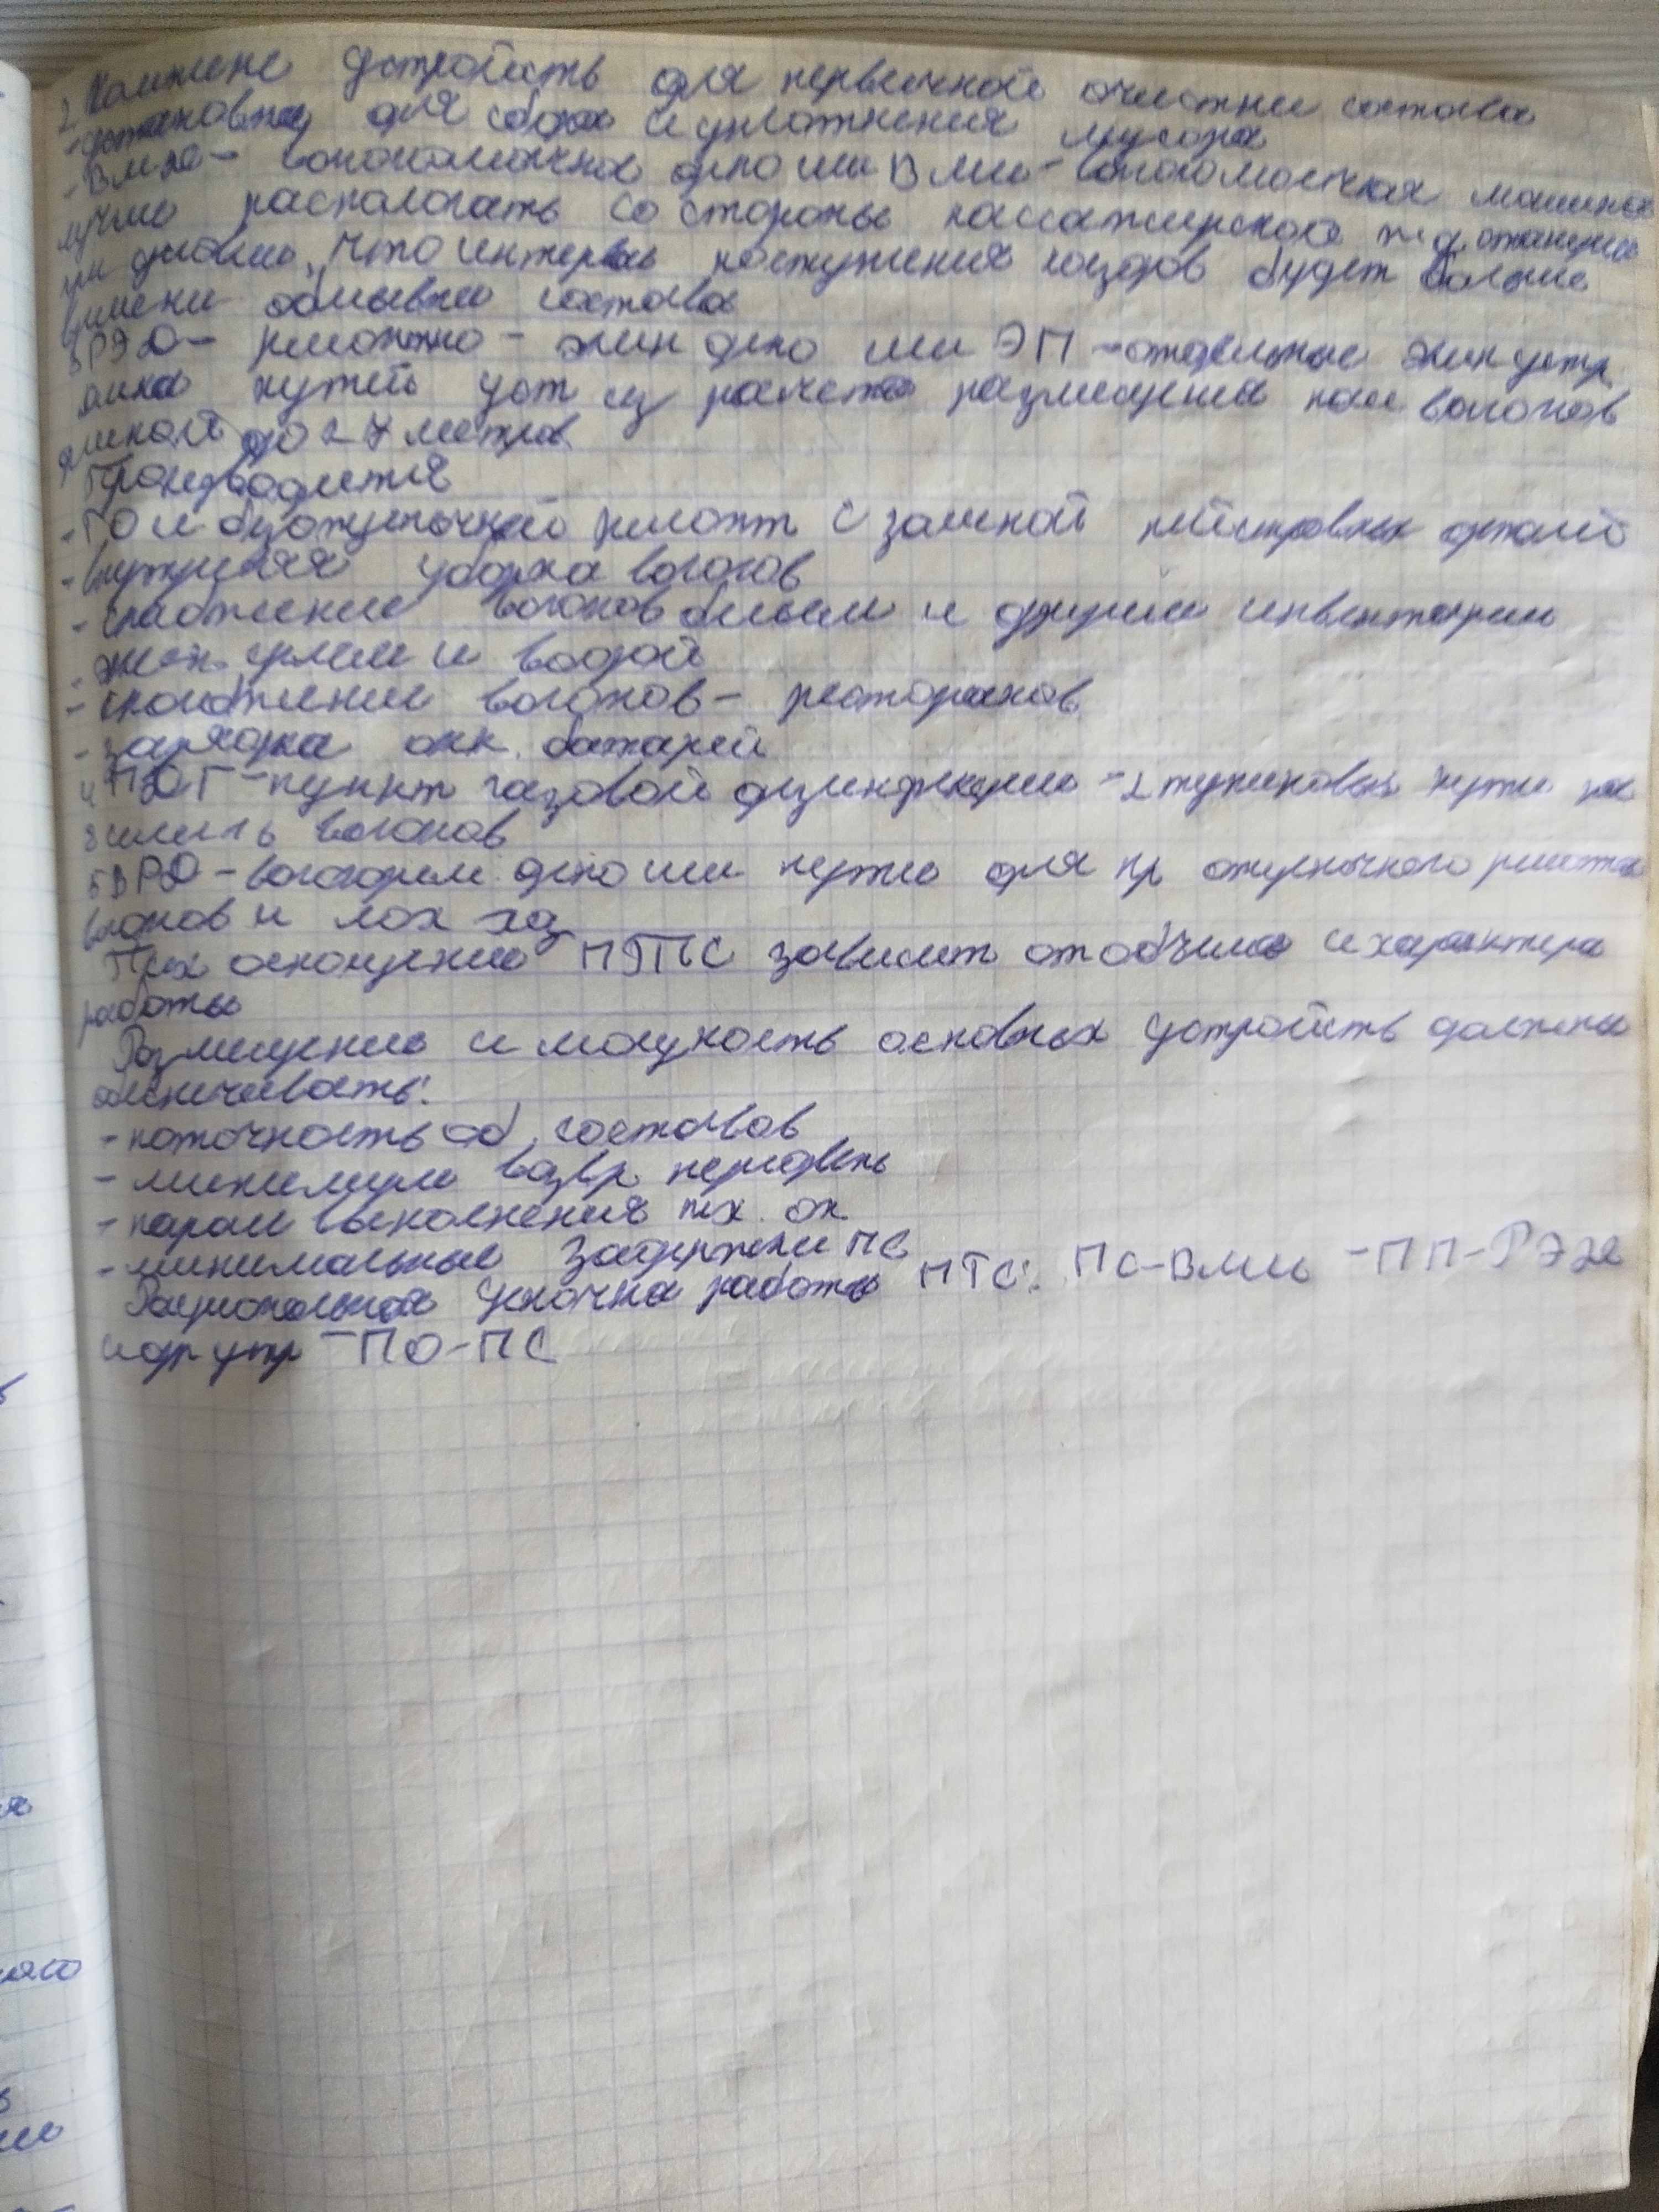 2. Комплекс устройств для первичной очистки состава
- установка для сбора и уплотнения мусора
- ВМД - вагономоечная депо или ВММ - вагономоечная машина
лучше распологать со стороны пассажирской ж.д. станции
при условии, что интервал поступления поездов будет больше
времени обмывки состава
3 РЭД - ремонтно - экип депо или ЭП - отдельные экип устр.
длина путей уст из расчета размещения пас вагонов
длиной до 27 метров
Производится
- ТО и безотцепочный ремонт с заменой неисправных деталей
- внутренняя уборка вагонов
- снабжение вагонов бельем и другим инвентарем
- экип. углем и водой
- снабжение вагонов - ресторанов
- зарядка акк. батарей
4 ПДГ - пункт газовой дезинфекции - 2 тупиковых пути на
вагонов
5 ВРД - вагонорем. депо или пути для пр отцепочного ремонта
вагонов и
Тех оснащение ПТС зависит от объема и характера
работы
Размещение и мощность основных устройств должны
обеспечивать:
- поточность об. составов
- минимум возвр. передвиж
- парал выполнения тех. оп
- минимальные задержки ПС
Рациональная цепочка работы ПТС: ПС-ВММ -ПП-РЭД
и др устр -ПО-ПС